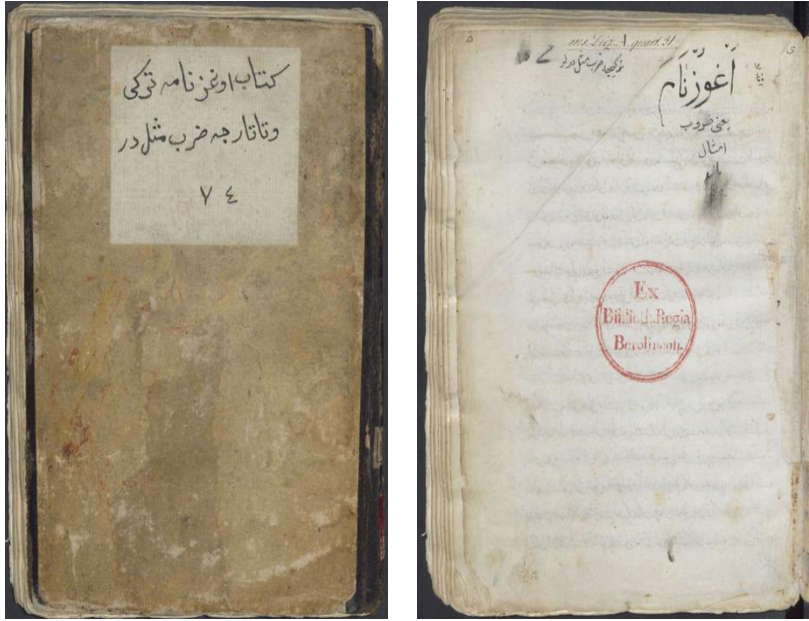 كتاب اوغز نامه تركى
وتاتارجه ضرب مثل در
٧٤
ms. Diez A. quart. 31.
اغوزنام
يعنى ضروب
امثال
Ex
Biblioth. Regia
Berolinensi.